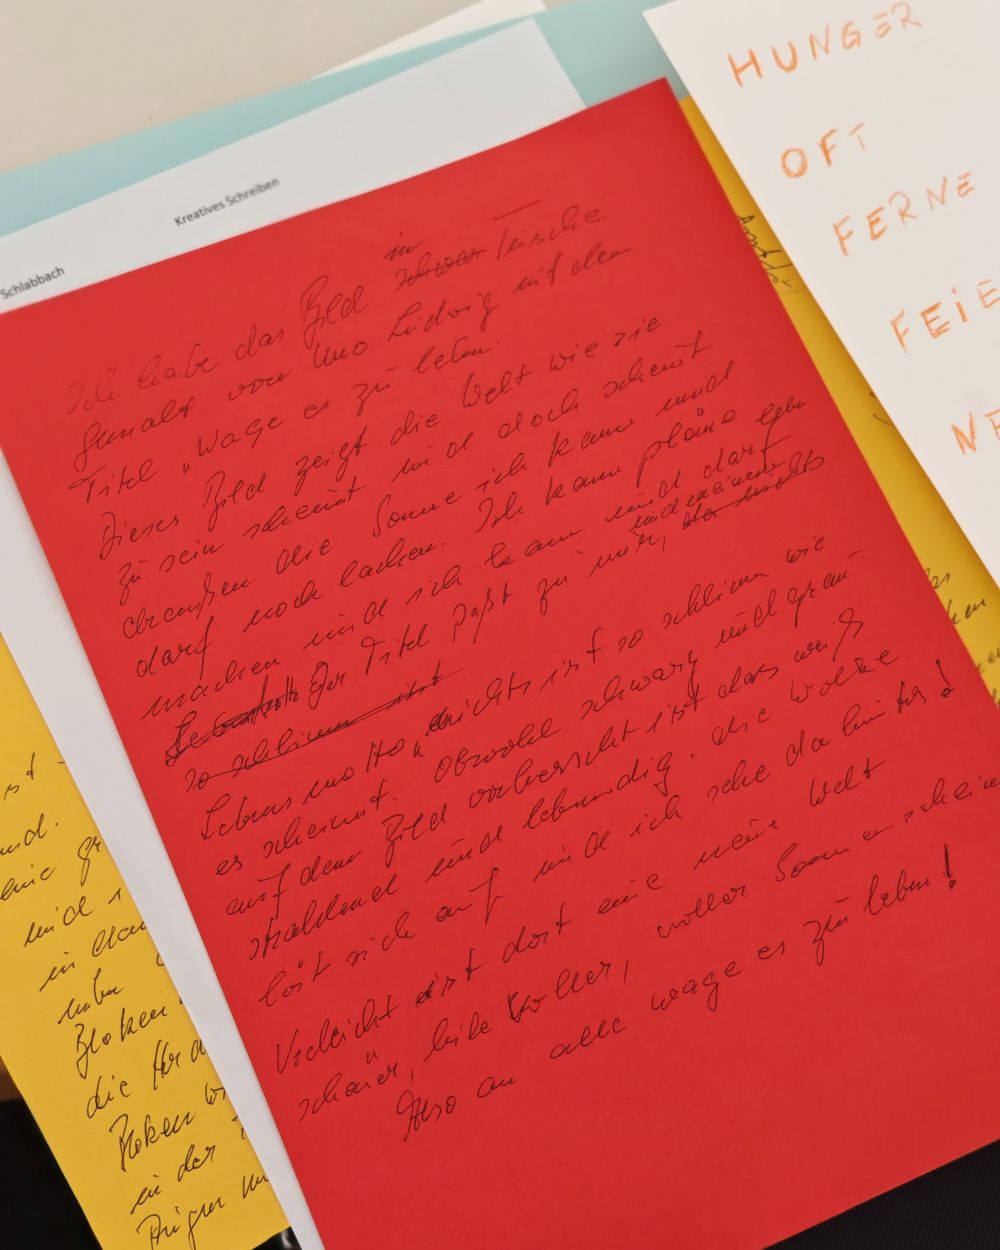 Kreatives Schreiben
Schlabbach
HUNGER
OFT
FERNE
FEIE
NE
in
Ich habe das Bild schwar Tusche
Gemalt von Uno Ludwig mit dem
Titel „Wage es zu leben.
Dieses Bild zeigt die Welt wie sie
zu sein scheint und doch scheint
draußen die Sonne ich kann und
darf noch lachen. Ich kann pläne
machen und ich kann und darf
Der Titel Paßt zu mir, und meinem
so schlimm ist
Lebensmotto „nichts ist so schlimm wie
es scheint. Obwohl schwarz und grau
auf dem Bild vorherscht ist das weiß
strahlend und lebendig. die Wolke
löst sich auf und ich sehe da hinter!
Vieleicht ist dort eine neue Welt
schöner, voller, voller Sonnenschein
Also an alle wage es zu leben!
und.
und
in
Bloken
die
Bloken
in der